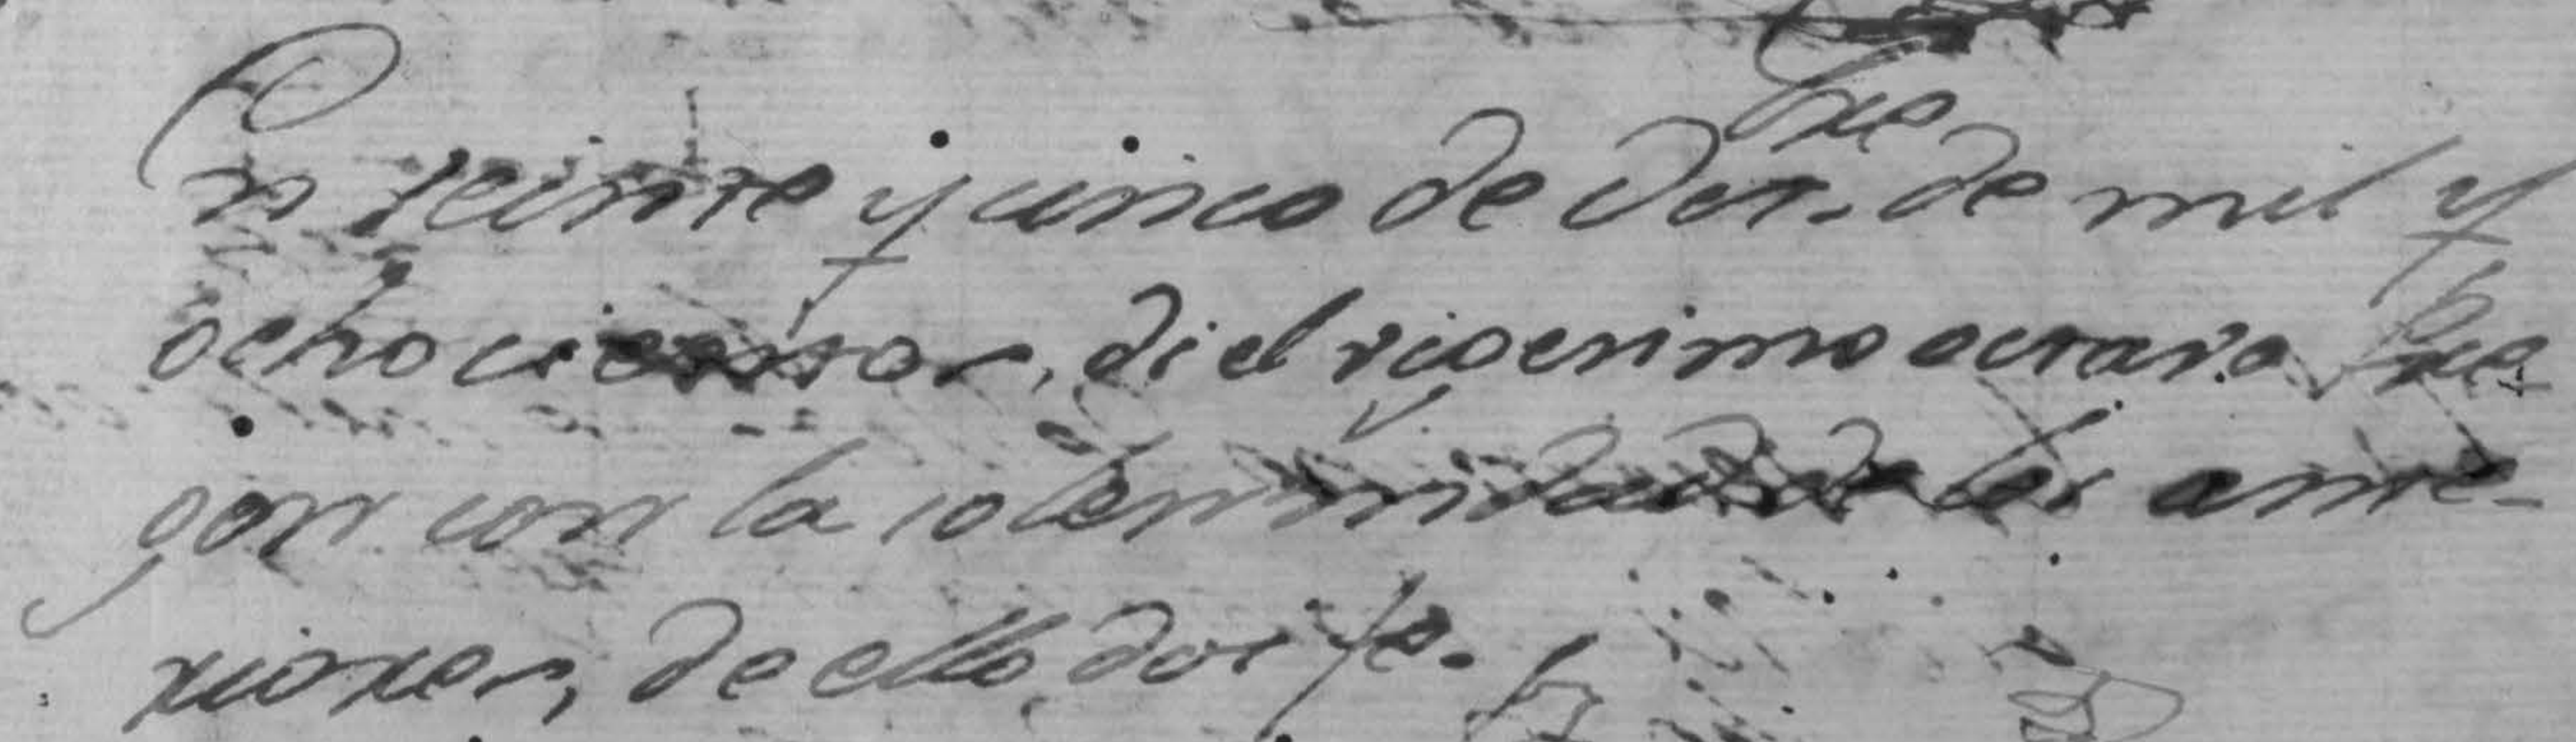 En veinte y cinco de Oct.bre de mil y
ochocientos, di el vigesimo octavo Pre
gon con la solemnidad de los ante-
riores, de ello doi fe.